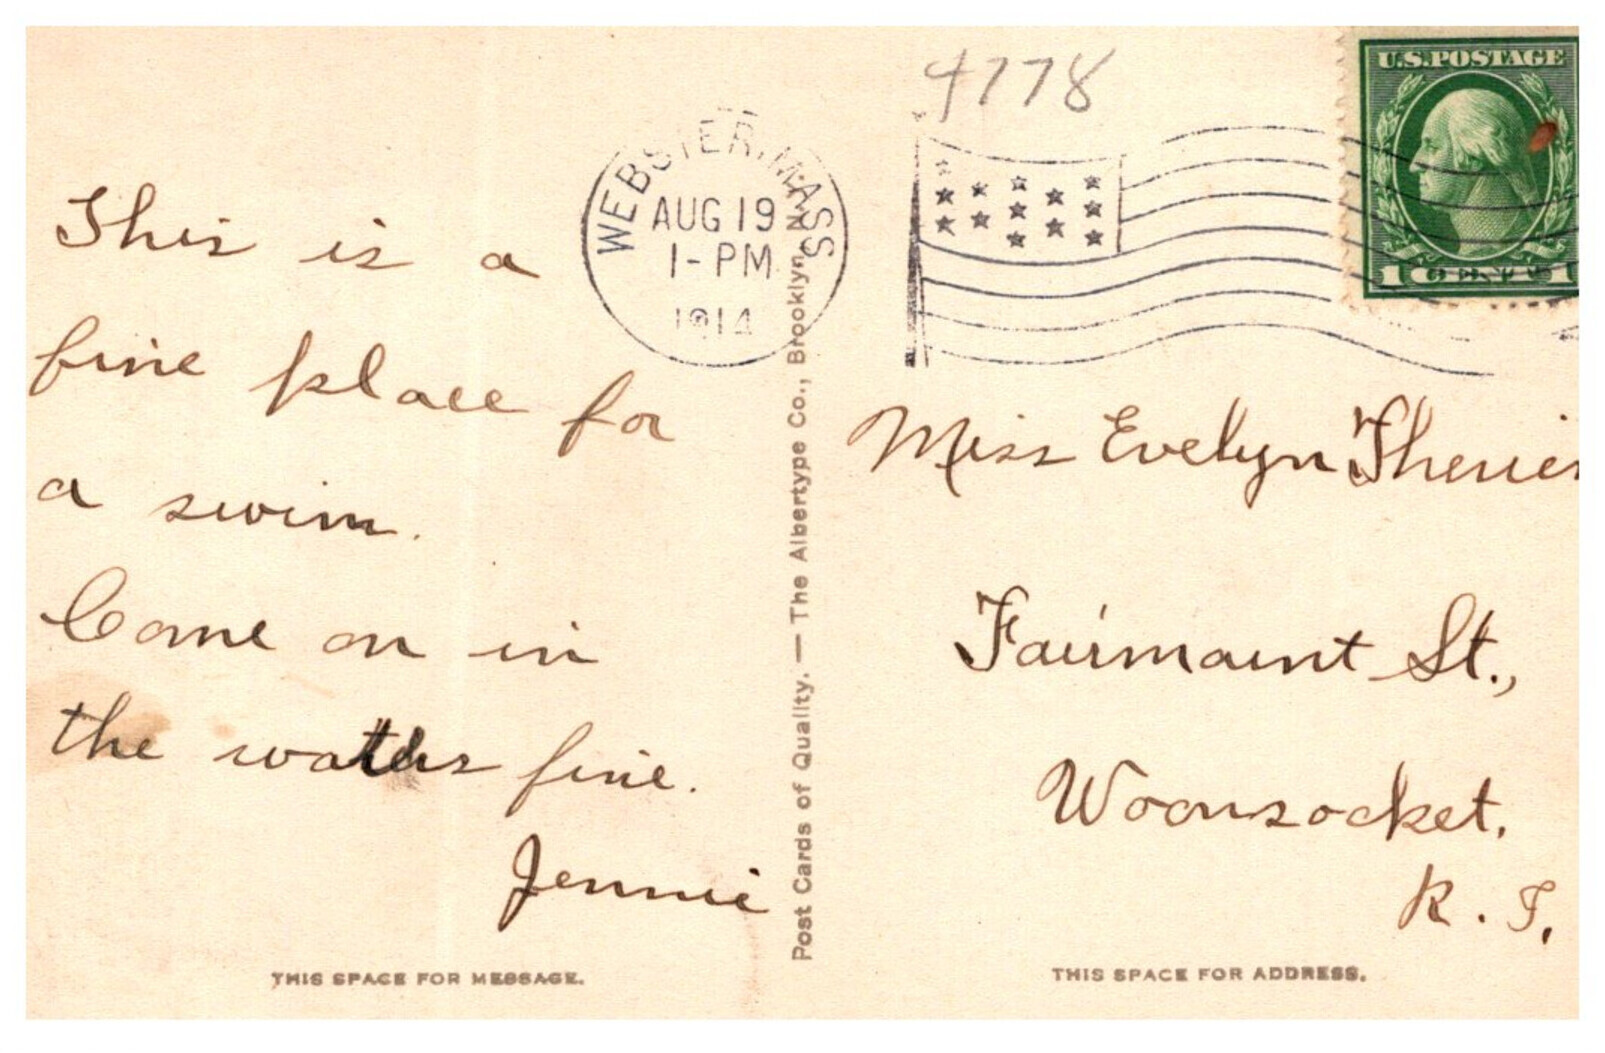 4778
U.S. POSTAGE
WEBSTER, MASS
AUG 19
1-PM
1914
This is a
fine place for
a swim.
Come on in
the waters fine.
Jennie
THIS SPACE FOR MESSAGE.
Post Cards of Quality. — The Albertype Co., Brooklyn, N.Y.
Miss Evelyn
Fairmount St.,
Woonsocket.
R. I.
THIS SPACE FOR ADDRESS.